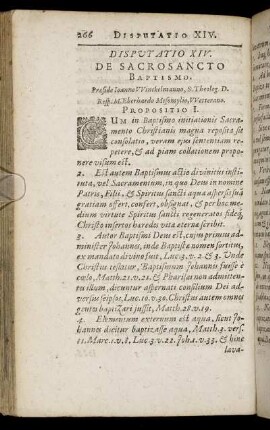 266 DISPUTATIO XIV.
DISPUTATIO XIV.
DE SACROSANCTO
BAPTISMO.
Præside Ioanne VVinckelmanno, S. Theolog. D.
Resp. M. Eberhardo
PROPOSITIO I.
CUM in Baptismo initiationis Sacra-
mento Christianis magna reposita sit
consolatio, veram ejus sententiam re-
petere, & ad piam collationem propo-
nere visum est.
2. Est autem Baptismus actio divinitùs insti-
tuta, vel Sacramentum, in quo Deus in nomine
Patris, Filii, & Spiritus sancti aqua aspersis suā
gratiam offert, confert, obsignat, & per hoc me-
dium virtute Spiritus sancti regeneratos fideq́;
Christo insertos hæredes vitæ æternæ scribit.
3. Autor Baptismi Deus est, cum primus ad-
minister Johannes, inde Baptistæ nomen sortitus,
ex mandato divino fuit, Luc. 3. v. 2. & 3. Unde
Christus testatur, Baptismum Johannis fuisse è
cœlo, Matth. 21. v. 25. & Pharisæi non admitten-
tes istum, dicuntur aspernati consilium Dei ad-
versus seipsos, Luc. 7. v. 30. Christus autem omnes
gentes baptizari jussit, Matth. 28. v. 19.
4. Elementum externum est aqua, sicut Jo-
hannes dicitur baptizasse aqua, Matth. 3. vers.
11. Marc. 1. v. 8. Luc. 3. v. 22. Joh. 1. v. 33. & hinc
lava-